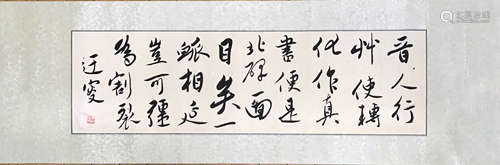 晋人行
艸使轉
化作真
書便是
北碑面
目矣一
脈相延
豈可彊
為割裂
迂叟